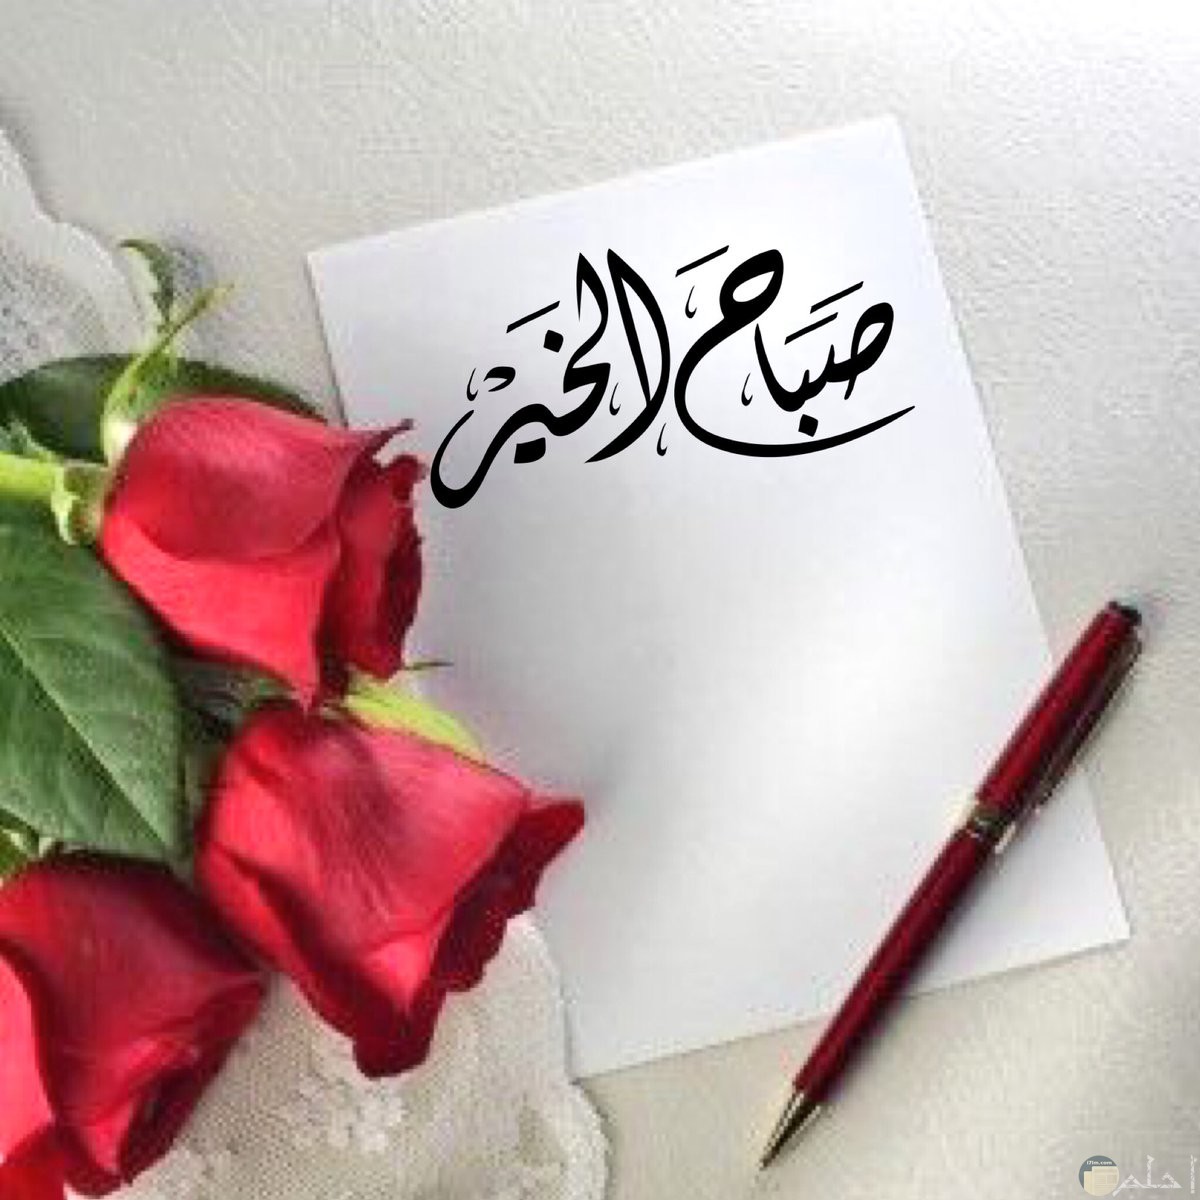 صباح الخير
احلم